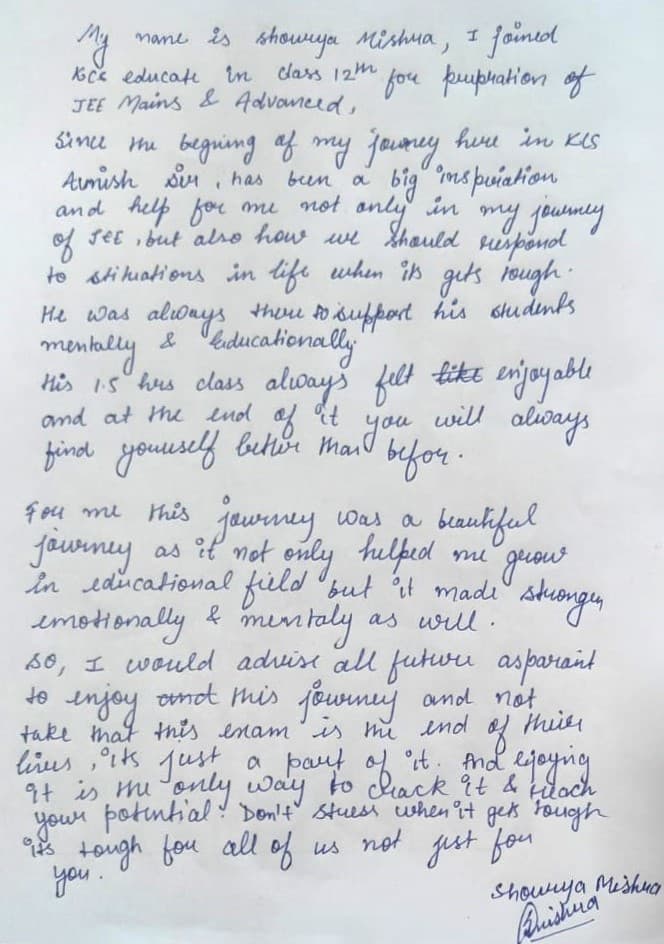 My name is Showrya Mishra, I joined
KCS educate in class 12th for prepration of
JEE Mains & Advanced,
Since the begning of my journey here in KCS
Avnish Sir, has been a big inspiration
and help for me not only in my journey
of JEE, but also how we should respond
to stituations in life when its gets rough.
He was always there to support his students
mentally & Educationally
His 1.5 hrs class always felt like enjoyable
and at the end of it you will always
find yourself better than befor.
For me this journey was a beautiful
journey as it not only helped me grow
in educational field but it made stronger
emotionally & mentaly as well.
So, I would advise all future asparant
to enjoy and this journey and not
take that this exam is the end of their
lives, its just a part of it. And ejoying
it is the only way to crack it & reach
your potential. Don't stress when it gets tough
its tough for all of us not just for
you.
Showrya Mishra